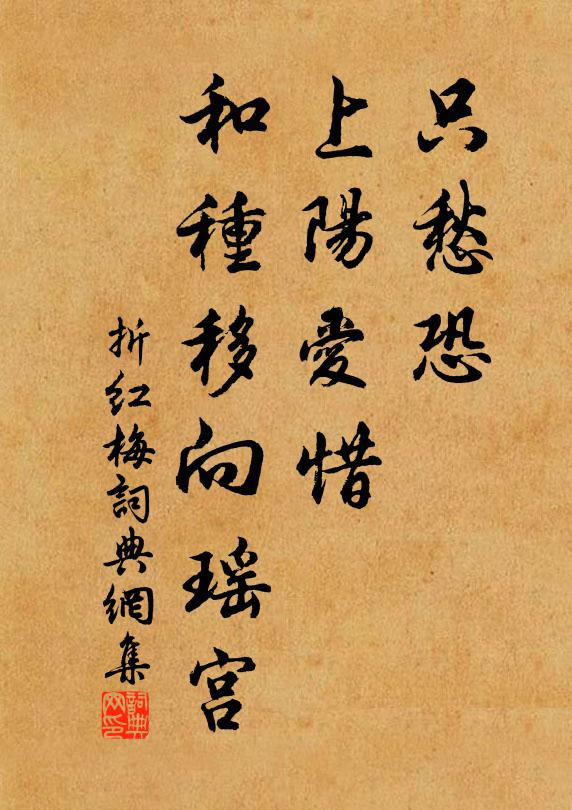 只愁恐
上陽愛惜
和種移向瑶宮
折紅梅詞典網集
詞典
网印